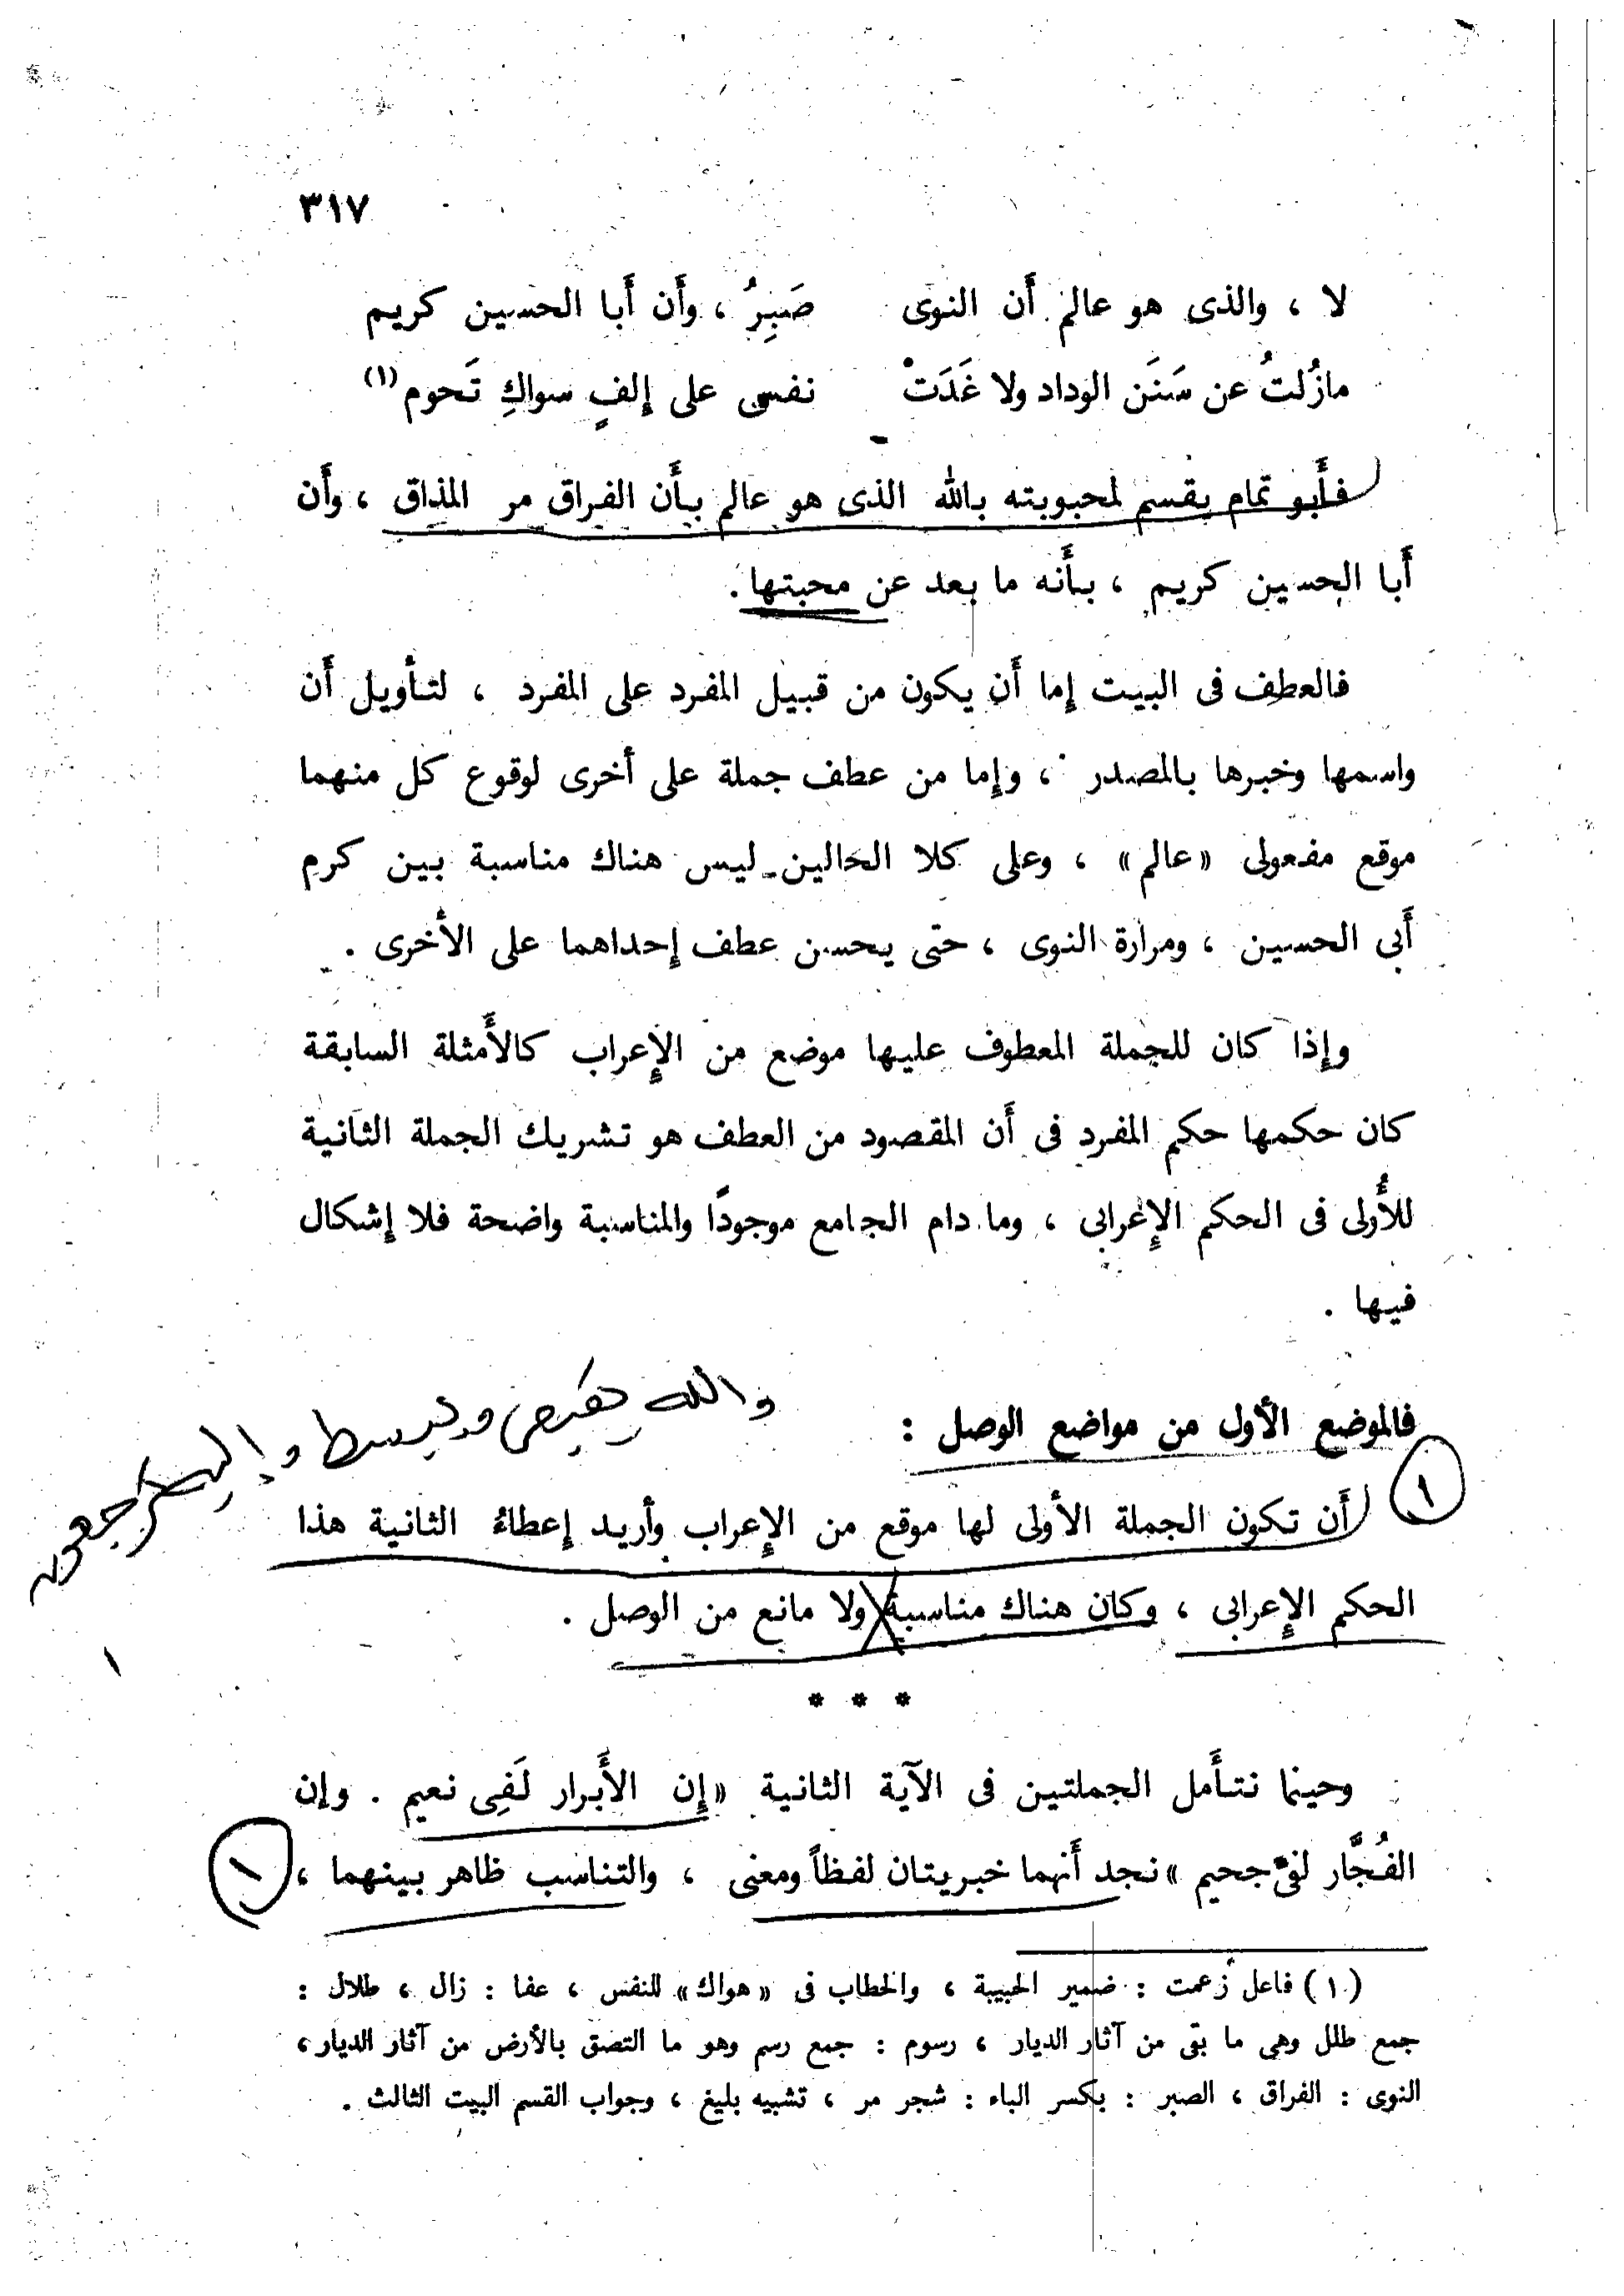 ٣١٧
لا ، والذى هو عالم أن النوى صَبِرُ ، وأن أبا الحسين كريم
مازُلتُ عن سَنَن الوداد ولا غَدَتْ نفسى على إلفٍ سواكِ تَحوم (١)
فأبو تمام يقسم لمحبوبته بالله الذى هو عالم بأن الفراق مر المذاق ، وأن
أبا الحسين كريم ، بأنه ما بعد عن محبتها .
فالعطف فى البيت إما أن يكون من قبيل المفرد على المفرد ، لتأويل أن
واسمها وخبرها بالمصدر ، وإما من عطف جملة على أخرى لوقوع كل منهما
موقع مفعولى «عالم» ، وعلى كلا الحالين ليس هناك مناسبة بين كرم
أبى الحسين ، ومرارة النوى ، حتى يحسن عطف إحداهما على الأخرى .
وإذا كان للجملة المعطوف عليها موضع من الإعراب كالأمثلة السابقة
كان حكمها حكم المفرد فى أن المقصود من العطف هو تشريك الجملة الثانية
للأُولى فى الحكم الإعرابى ، وما دام الجامع موجودًا والمناسبة واضحة فلا إشكال
فيها .
والله يقبض ويبسط وإليه ترجعون
فالموضع الأول من مواضع الوصل :
١
أن تكون الجملة الأولى لها موقع من الإعراب وأريد إعطاءُ الثانية هذا
الحكم الإعرابى ، وكان هناك مناسبة ولا مانع من الوصل .
١
* * *
وحينما نتأمل الجملتين فى الآية الثانية «إن الأبرار لَفِى نعيم . وإن
الفُجَّار لفى جحيم» نجد أنهما خبريتان لفظاً ومعنى ، والتناسب ظاهر بينهما ،
١
(١) فاعل زعمت : ضمير الحبيبة ، والخطاب فى «هواك» للنفس ، عفا : زال ، طلال :
جمع طلل وهى ما بقى من آثار الديار ، رسوم : جمع رسم وهو ما التصق بالأرض من آثار الديار ،
النوى : الفراق ، الصبر : بكسر الباء : شجر مر ، تشبيه بليغ ، وجواب القسم البيت الثالث .